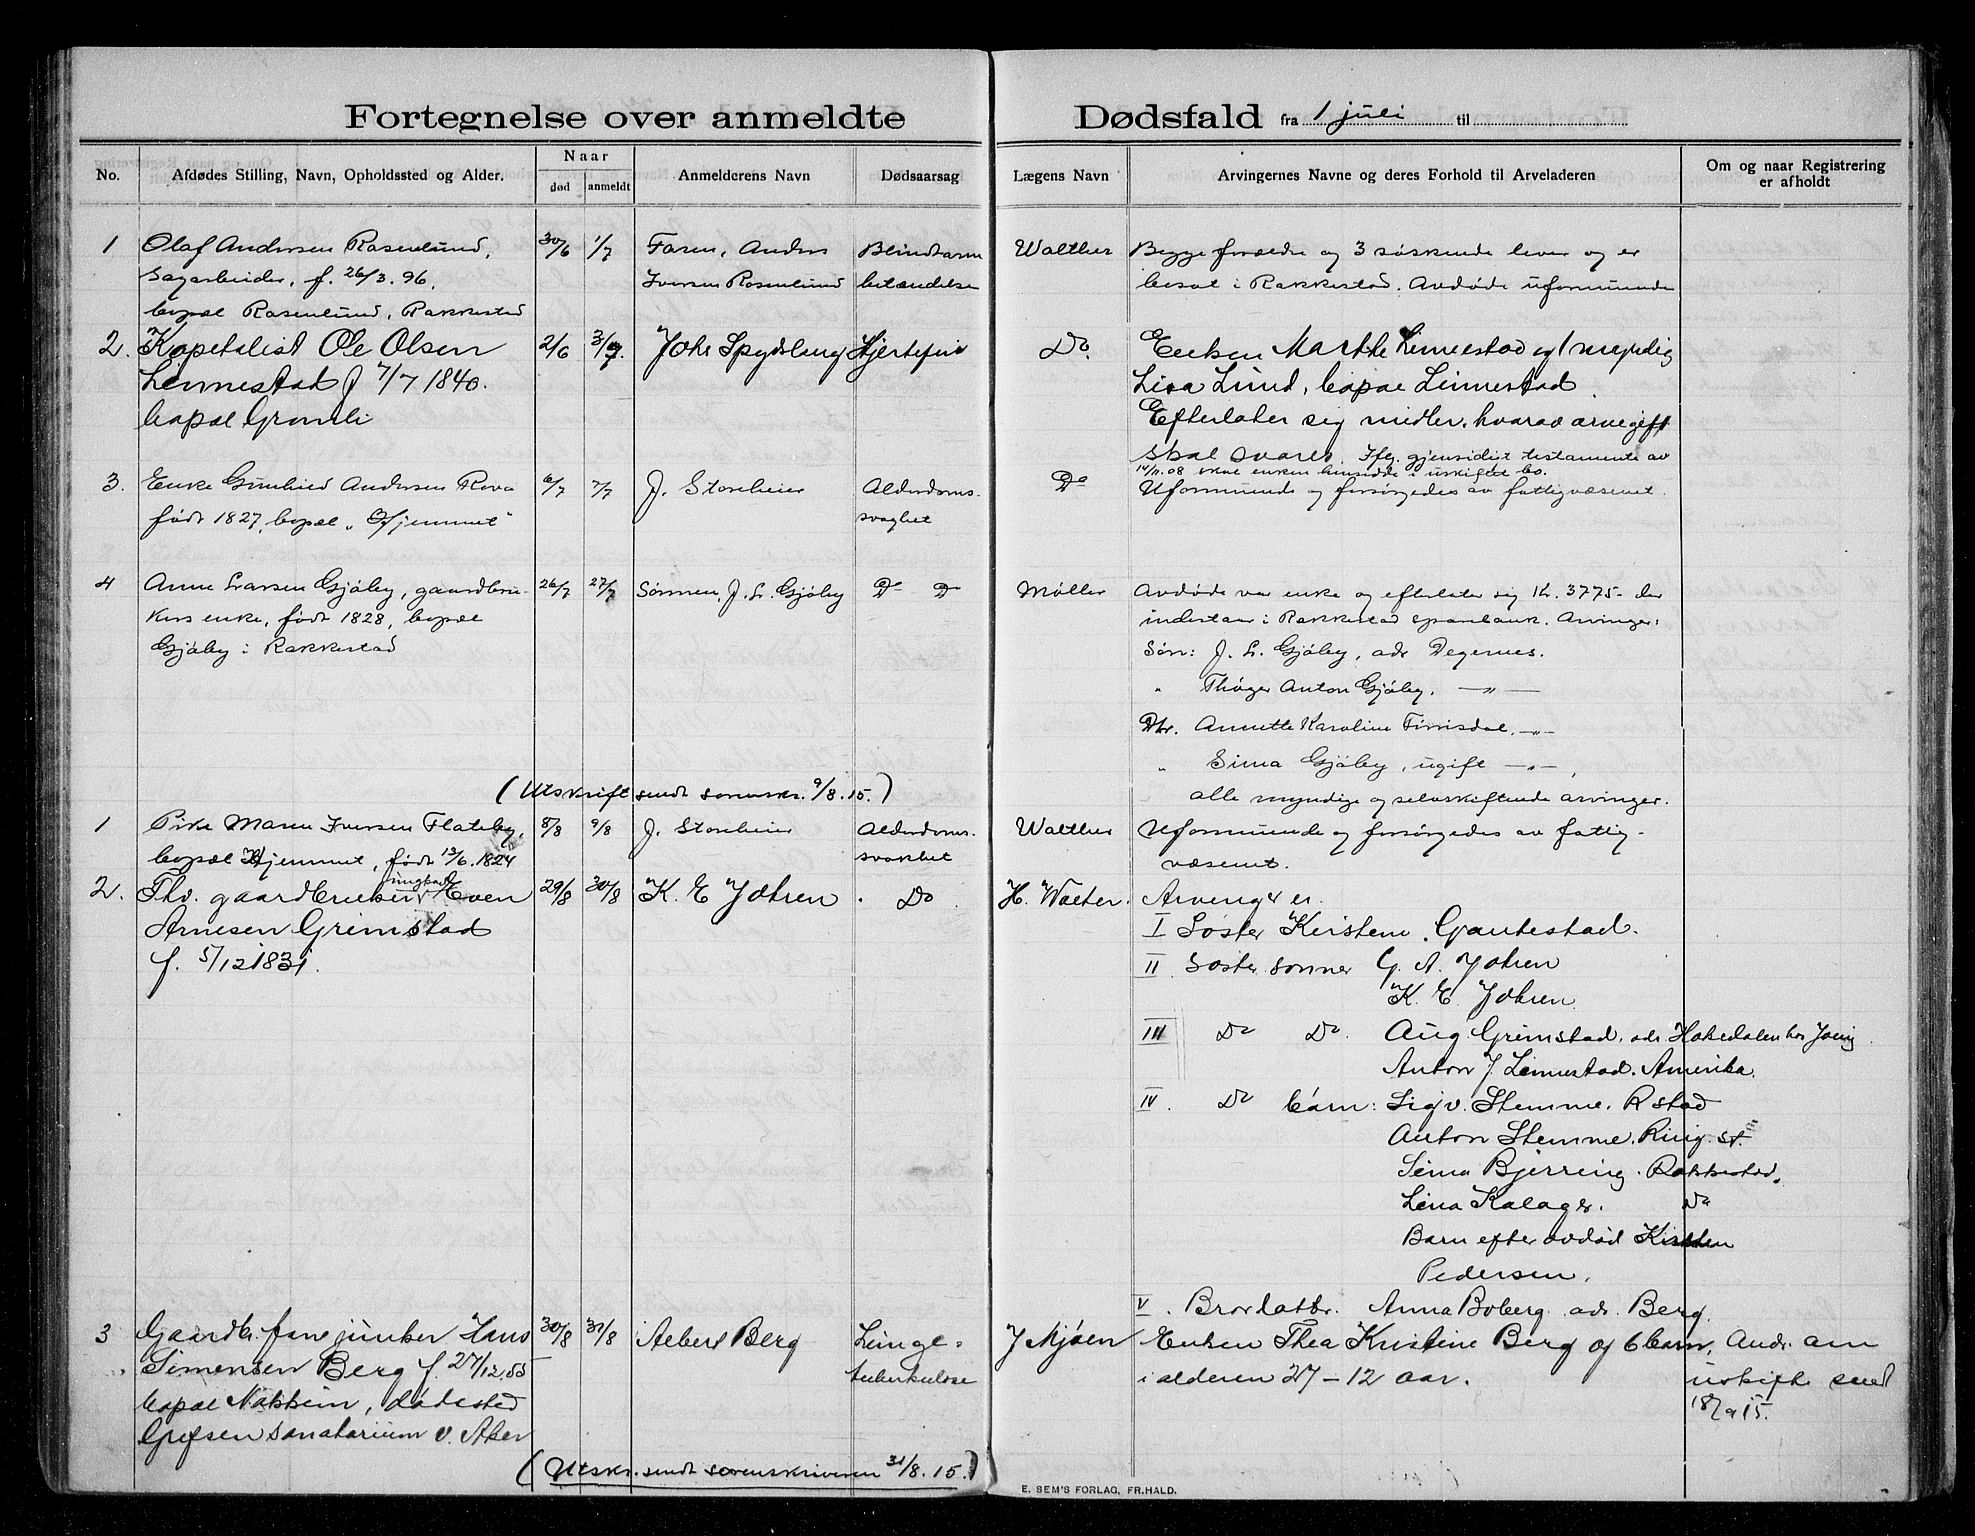 Fortegnelse over anmeldte Dødsfald fra 1 juli til
No.
Afdødes Stilling, Navn, Opholdssted og Alder.
Naar
død
anmeldt
Anmelderens Navn
Dødsaarsag
Lægens Navn
Arvingernes Navne og deres Forhold til Arveladeren
Om og naar Registrering
er afholdt
1 Olaf Andersen Rosenlund, 30/6 1/7 Faren, Anders Blindtarm Walther Begge forældre og 3 søskende lever og er
Sagarbeider, f. 26/3.96, Iversen Rosenlund betændelse bosat i Rakkestad. Avdøde uformuende
bopæl Rosenlund, Rakkestad
2. Kapitalist Ole Olsen 2/6 3/7. Johs Spydslaug Hjertefeil Do. Enken Marthe Linnestad og 1 myndig
Linnestad f 7/7 1840. Lisa Lund, bopæl Linnestad
bopæl Gromli Efterlater sig midler, hvorav arvegift
skal svares. Ifg. gjensidigt testamente av
14/11.08 skal enken hensidde i uskiftet bo.
3. Enke Gunhild Andersen Rova 6/7 7/7 J. Storeheier Alderdoms- Do Uformuende og forsørgedes av fattigvæsenet.
født 1827, bopæl "Hjemmet" svaghet
4 Anne Larsen Gjølby, gaardbru- 26/7 27/7 Sønnen, J. L. Gjølby Do Do Møller Avdøde var enke og efterlater sig Kr. 3775- der
kers enke, født 1828, bopæl indestaar i Rakkestad sparebank. Arvinger:
Gjølby i Rakkestad Søn: J. L. Gjølby, adr Degernes.
" Thøger Anton Gjølby, —"—
Dtr. Annette Karoline Finnisdal, —"—
" Sina Gjølby, ugift —"—,
(Utskrift sendt sorenskr. 9/8.15.) alle myndige og selvskiftende arvinger.
1 Pike Maren Iversen Flateby, 8/8 9/8 J. Storeheier Alderdoms- Walther Uformuende og forsørgedes av fattig-
bopæl Hjemmet, født 13/6.1824 svakhet væsenet.
ungkarl
2. Fhv. gaardbruker Even 29/8 30/8 K. E. Johren. Do. H. Walter. Arvinger er.
Arnesen Grimstad I Søster Kirstine Gautestad.
f. 5/12 1831. II Søster sønner G. A. Johren
K. E. Johren
III Do Do. Aug. Grimstad, adr. Hakedalen
Anton J. Linnestad. Amerika.
IV. Do børn: Sigv. Stemme. Rstad
Anton Stemme. Ring. st.
Sina Bjerring. Rakkestad.
Lina Kalager. Do
Barn efter avdød Kirsten
Pedersen.
V. Brordatr. Anna Boberg. adr. Berg.
3 Gaardbr. Hans 30/8 31/8 Albert Berg Lunge- J Mjøen Enken Thea Kristine Berg og 6 barn, Andr. om
Simensen Berg f. 27/12.55 tuberkulose i alderen 27-12 aar. uskifte send
bopæl Nakkim, dødested 18/9 15.
Grefsen sanatorium v. Aker
(Utskr. sendt sorenskriveren 31/8.15.)
E. SEM'S FORLAG, FR.HALD.